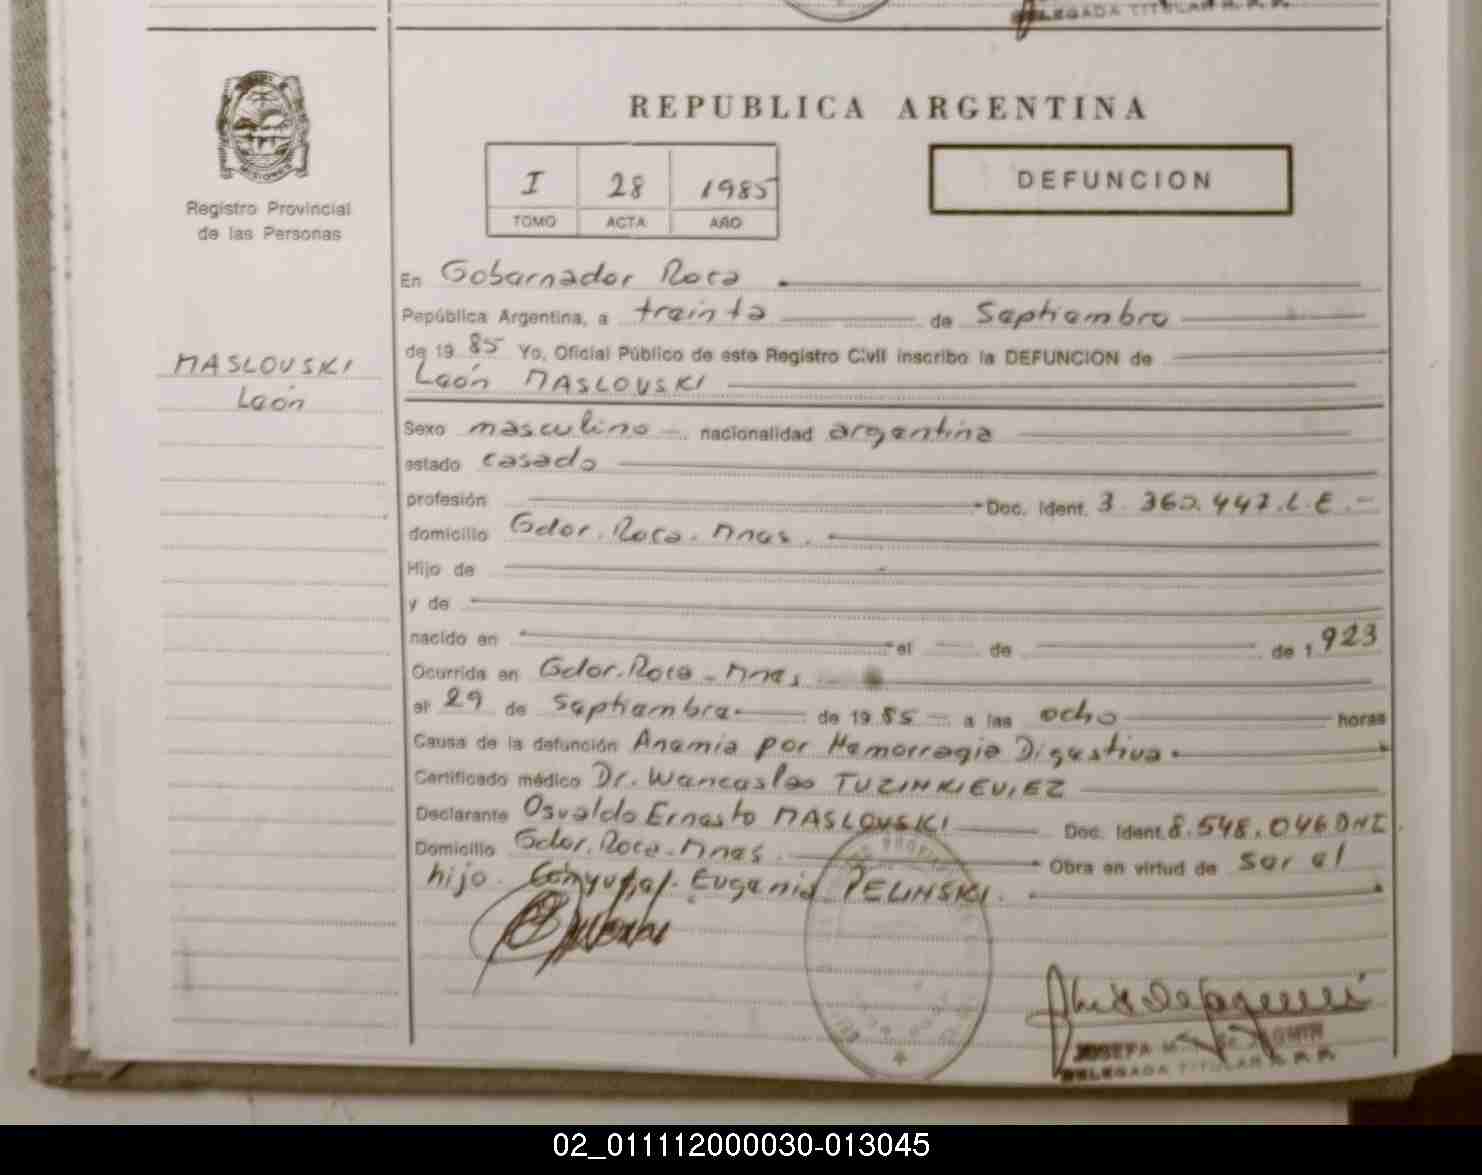 DELEGADA TITULAR R. P. P.
MISIONES
Registro Provincial
de las Personas
MASLOVSKI
León
REPUBLICA ARGENTINA
I 28 1985
TOMO ACTA AÑO
DEFUNCION
En Gobernador Roca
República Argentina, a treinta de Septiembre
de 19 85 Yo, Oficial Público de este Registro Civil inscribo la DEFUNCION de
León MASLOVSKI
Sexo masculino nacionalidad argentina
estado casado
profesión Doc. Ident. 3.360.447.L.E.-
domicilio Gdor. Roca. Mnes.
Hijo de
y de
nacido en el de de 1923
Ocurrida en Gdor. Roca - Mnes.
el 29 de septiembre de 1985 a las ocho horas
Causa de la defunción Anemia por Hemorragia Digestiva.
Certificado médico Dr. Wenceslao TUZINKIEVIEZ
Declarante Osvaldo Ernesto MASLOVSKI Doc. Ident. 8.548.046 DNI.
Domicilio Gdor. Roca - Mnes. Obra en virtud de ser el
hijo. Cónyuge/. Eugenia PELINSKI.
JOSEFA M.
DELEGADA TITULAR R. P. P.
02_011112000030-013045